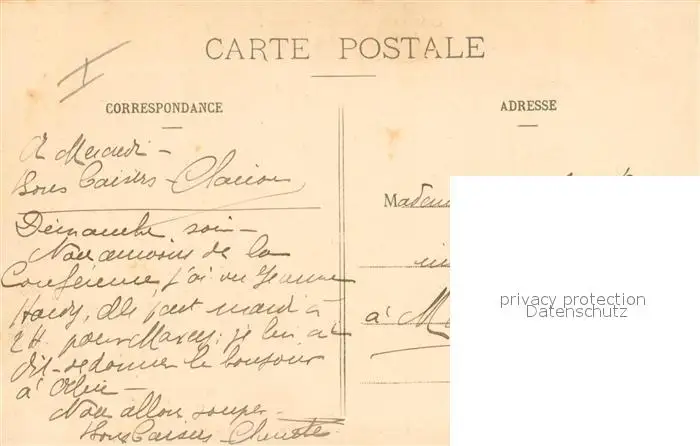 CARTE POSTALE
CORRESPONDANCE
ADRESSE
A Mercredi -
Bons Baisers
Dimanche soir -
Nous de la
Conférence j'ai vu Jeanne
Hardy, elle part mardi à
2 H. pour je lui ai
dit de donner le bonjour
à
Nous allons souper
Bons Baisers
Madem
à M
privacy protection
Datenschutz